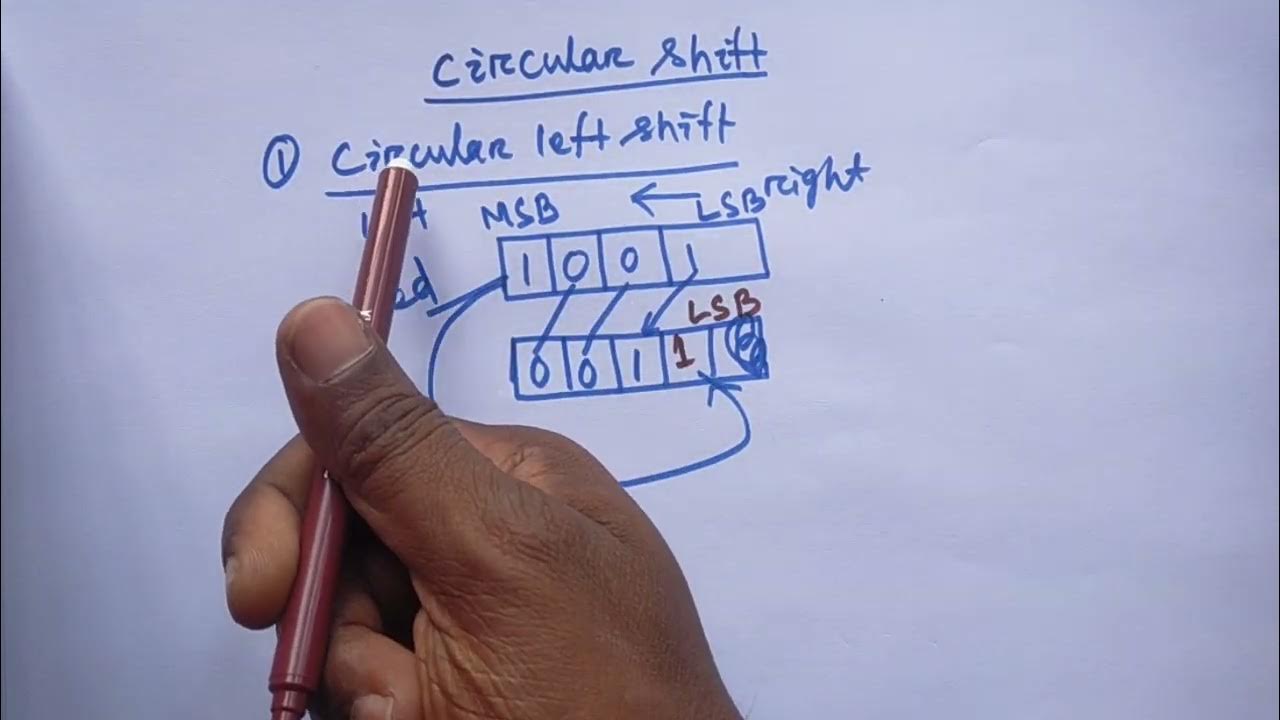 circular shift
① circular left shift
MSB ← LSB right
1 0 0 1
LSB
0 0 1 1